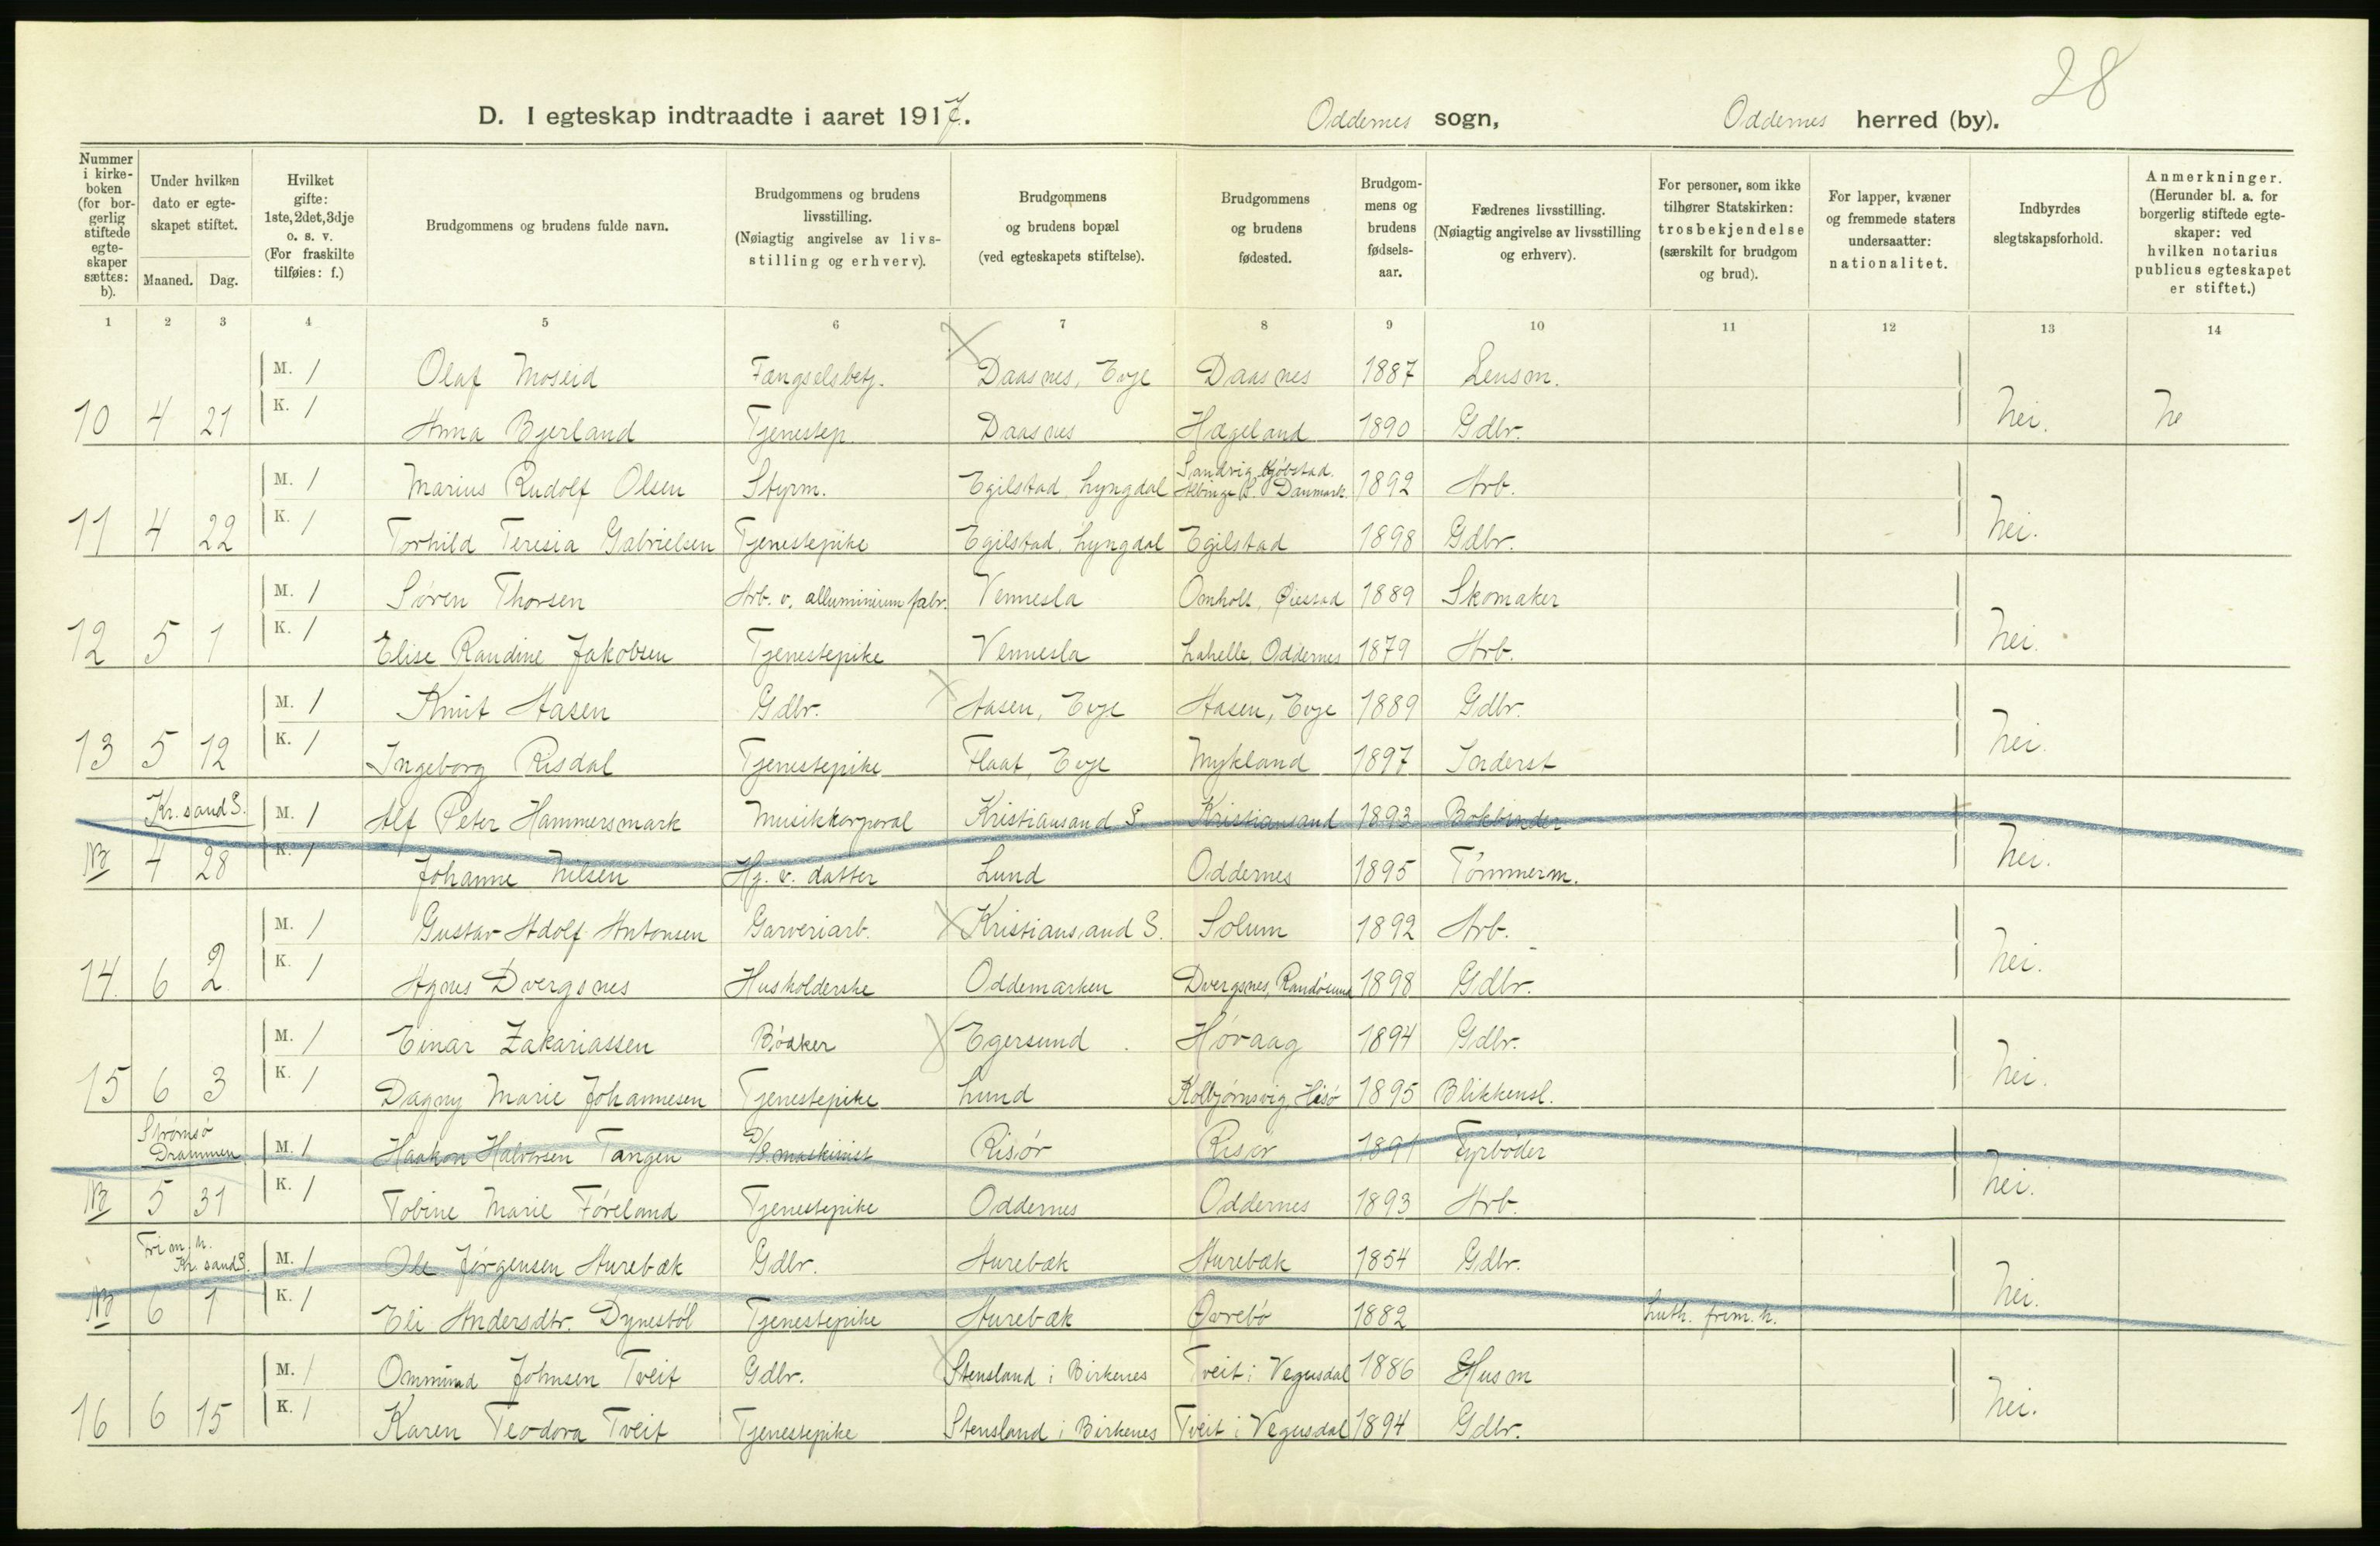 28
D. I egteskap indtraadte i aaret 1917. Oddernes sogn, Oddernes herred (by).
Nummer i kirkeboken (for borgerlig stiftede egteskaper sættes: b).
Under hvilken dato er egteskapet stiftet.
Maaned. Dag.
Hvilket gifte: 1ste, 2det, 3dje o. s. v. (For fraskilte tilføies: f.)
Brudgommens og brudens fulde navn.
Brudgommens og brudens livsstilling. (Nøiagtig angivelse av livsstilling og erhverv).
Brudgommens og brudens bopæl (ved egteskapets stiftelse).
Brudgommens og brudens fødested.
Brudgommens og brudens fødselsaar.
Fædrenes livsstilling. (Nøiagtig angivelse av livsstilling og erhverv).
For personer, som ikke tilhører Statskirken: trosbekjendelse (særskilt for brudgom og brud).
For lapper, kvæner og fremmede staters undersaatter: nationalitet.
Indbyrdes slegtskapsforhold.
Anmerkninger. (Herunder bl. a. for borgerlig stiftede egteskaper: ved hvilken notarius publicus egteskapet er stiftet.)
1 2 3 4 5 6 7 8 9 10 11 12 13 14
M. 1 Olaf Moseid Fængselsbetj. Daasnes, Evje Daasnes 1887 Lensm.
10 4 21 K. 1 Anna Bjerland Tjenestep. Daasnes Hægeland 1890 Gdbr. Nei. Ne
M. 1 Marius Rudolf Olsen Styrm. Egilstad, Lyngdal Sandvig Kjøbstad. Albinge P. Danmark. 1892 Arb.
11 4 22 K. 1 Torhild Teresia Gabrielsen Tjenestepike Egilstad, Lyngdal Egilstad 1898 Gdbr. Nei.
M. 1 Søren Thorsen Arb. v. alluminium fabr. Vennesla Omholt, Øiestad 1889 Skomaker
12 5 1 K. 1 Elise Randine Jakobsen Tjenestepike Vennesla Lahelle, Oddernes 1879 Arb. Nei.
M. 1 Knut Aasen Gdbr. Aasen, Evje Aasen, Evje 1889 Gdbr.
13 5 12 K. 1 Ingeborg Risdal Tjenestepike Flaat, Evje Mykland 1897 Inderst Nei.
Kr.sand S. M. 1 Alf Peter Hammersmark Musikkorporal Kristiansand S. Kristiansand 1893 Bokbinder
NB 4 28 K. 1 Johanne Nilsen Hj. v. datter Lund Oddernes 1895 Tømmerm. Nei.
M. 1 Gustav Adolf Antonsen Garveriarb. Kristiansand S. Solum 1892 Arb.
14. 6 2 K. 1 Agnes Dvergsnes Husholderske Oddemarken Dvergsnes, Randøsund 1898 Gdbr. Nei.
M. 1 Einar Zakariassen Bødker Egersund Høvaag 1894 Gdbr.
15 6 3 K. 1 Dagny Marie Johannesen Tjenestepike Lund Kolbjørnsvig, Hisø 1895 Blikkensl. Nei.
Strømsø Drammen M. 1 Haakon Halvorsen Tangen D/S. maskinist Risør Risør 1891 Fyrbøder
NB 5 31 K. 1 Tobine Marie Føreland Tjenestepike Oddernes Oddernes 1893 Arb. Nei.
Fri m. n. Kr. sand S. M. 1 Ole Jørgensen Aurebæk Gdbr. Aurebæk Aurebæk 1854 Gdbr.
NB 6 1 K. 1 Eli Andersdtr. Dynestøl Tjenestepike Aurebæk Øvrebø 1882 Luth. frim. n. Nei.
M. 1 Ommund Johnsen Tveit Gdbr. Stensland i Birkenes Tveit i Vegusdal 1886 Husm
16 6 15 K. 1 Karen Teodora Tveit Tjenestepike Stensland i Birkenes Tveit i Vegusdal 1894 Gdbr. Nei.